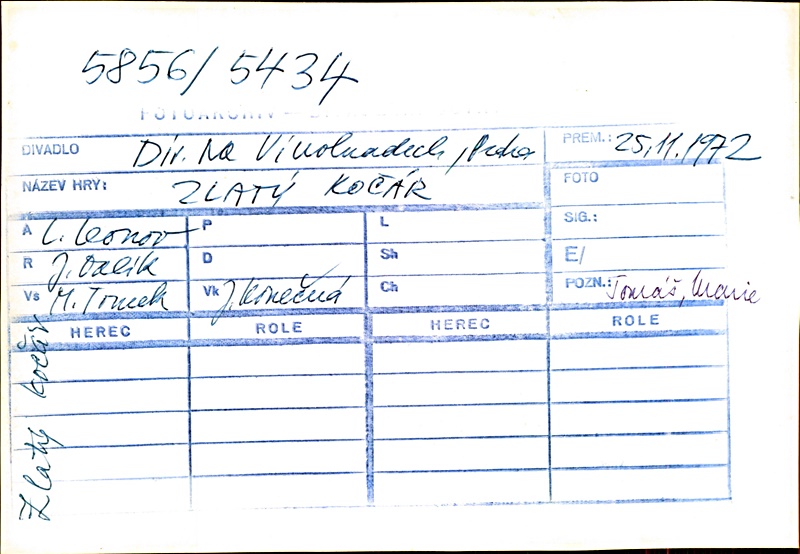 5856/5434
FOTOARCHIV –
DIVADLO Div. Na Vinohradech, Praha PREM.: 25.11.1972
NÁZEV HRY: ZLATÝ KOČÁR FOTO
A L. Leonov P L SIG.:
R J. Dalík D Sh E/
Vs M. Tomek Vk J. Konečná Ch POZN.: Tomáš, Marie
HEREC ROLE HEREC ROLE
Zlatý kočár